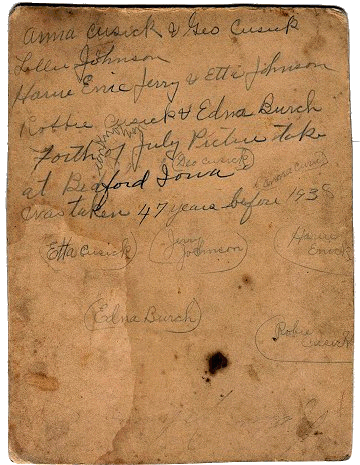 Anna Cusick & Geo Cusick
Lellie Johnson
Harve Enic Jerry & Etta Johnson
Robbie Cusick & Edna Burch
Forth of July Picture take
at Bedford Iowa
Geo Cusick
was taken 47 years before 1938
Etta Cusick
Jerry Johnson
Harve Enick
Edna Burch
Robie Cusick